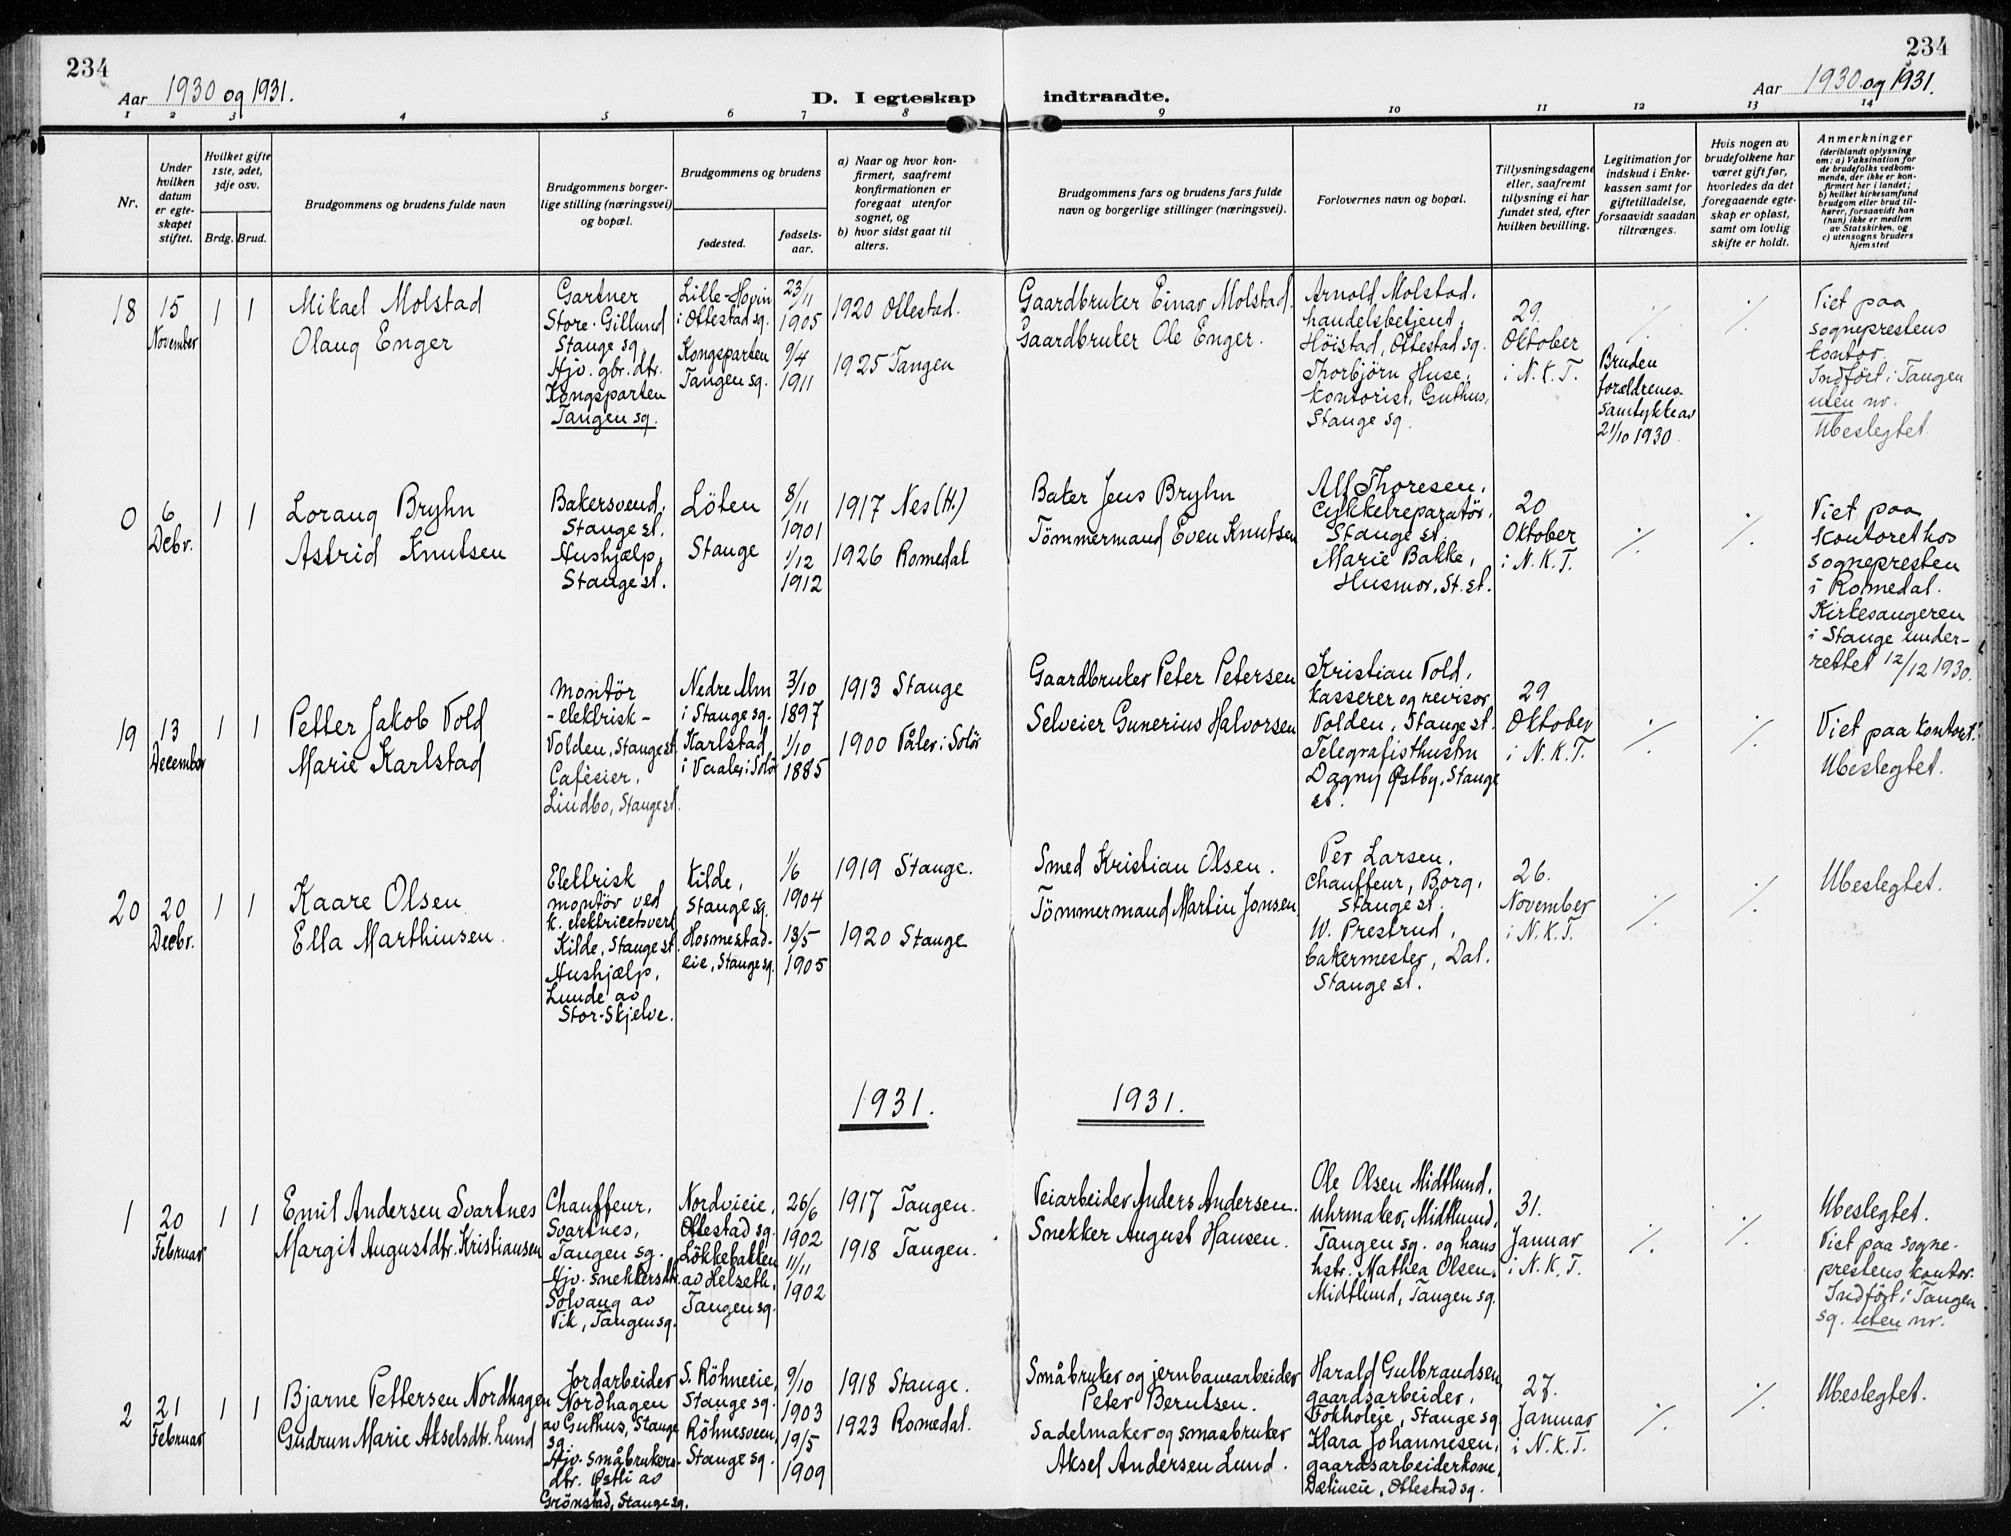 234
234
Aar 1930 og 1931.
D. I egteskap indtraadte.
Aar 1930 og 1931.
1 2 3 4 5 6 7 8 9 10 11 12 13 14
Nr.
Under
hvilken
datum
er egte-
skapet
stiftet.
Hvilket gifte
1ste, 2det,
3dje osv.
Brdg. Brud.
Brudgommens og brudens fulde navn
Brudgommens borger-
lige stilling (næringsvei)
og bopæl.
Brudgommens og brudens
fødested.
fødsels-
aar.
a) Naar og hvor kon-
firmert, saafremt
konfirmationen er
foregaat utenfor
sognet, og
b) hvor sidst gaat til
alters.
Brudgommens fars og brudens fars fulde
navn og borgerlige stillinger (næringsvei).
Forlovernes navn og bopæl.
Tillysningsdagene
eller, saafremt
tillysning ei har
fundet sted, efter
hvilken bevilling.
Legitimation for
indskud i Enke-
kassen samt for
giftetilladelse,
forsaavidt saadan
tiltrænges.
Hvis nogen av
brudefolkene har
været gift før,
hvorledes da det
foregaaende egte-
skap er opløst,
samt om lovlig
skifte er holdt.
Anmerkninger
(deriblandt oplysning
om: a) Vaksination for
de brudefolks vedkom-
mende, der ikke er kon-
firmert her i landet;
b) hvilket kirkesamfund
brudgom eller brud til-
hører, forsaavidt han
(hun) ikke er medlem
av Statskirken, og
c) utensogns bruders
hjemsted
18
15
November
1 1
Mikael Molstad
Olaug Enger
Gartner
Store-Gillund
Stange sg.
Hjv. gbr. dtr.
Kongsparten
Tangen sg.
Lille-Hovin
i Ottestad sg.
Kongsparten
Tangen sg.
23/11
1905
9/4
1911
1920 Ottestad.
1925 Tangen
Gaardbruker Einar Molstad.
Gaardbruker Ole Enger.
Arnold Molstad,
handelsbetjent,
Höistad, Ottestad sg.
Thorbjørn Huse,
kontorist, Guthus,
Stange sg.
29.
Oktober
i N.K.T.
%
Bruden
forældrenes
samtykke av
21/10 1930.
%
Viet paa
sogneprestens
kontor.
Indført i Tangen
uten nr.
Ubeslegtet.
0
6
Debr.
1 1
Lorang Bryhn
Astrid Knutsen
Bakersvend,
Stange st.
Hushjælp,
Stange st.
Löten
Stange
8/11
1901
1/12
1912
1917 Nes (H.)
1926 Romedal
Baker Jens Bryhn
Tömmermand Even Knutsen
Alf Thoresen,
Cykkelreparatör,
Stange st.
Marie Bakke,
Husmor, St. st.
20
Oktober
i N.K.T.
%
%
Viet paa
kontoret hos
sognepresten
i Romedal.
Kirkesangeren
i Stange under-
rettet 12/12 1930.
19
13
December
1 1
Petter Jakob Vold
Marie Karlstad
Montör
-elektrisk-
Volden, Stange st.
Cafèeier,
Lindbo, Stange st.
Nedre Alm
i Stange sg.
Karlstad
i Vaaler i Solör
3/10
1897
1/10
1885
1913 Stange
1900 Våler i Solör
Gaardbruker Peter Petersen
Selveier Gunerius Halvorsen
Kristian Vold,
kasserer og revisor
Volden, Stange st.
Telegrafisthustru
Dagny Østby, Stange
st.
29
Oktober
i N.K.T.
%
%
Viet paa kontoret.
Ubeslegtet.
20
20
Decbr.
1 1
Kaare Olsen
Ella Marthinsen.
Elektrisk
montör ved
k. elektricetsverk
Kilde, Stange st.
Hushjælp,
Lunde av
Stor-Skjelve.
Kilde,
Stange sg.
Hosmestad-
eie, Stange sg.
1/6
1904
13/5
1905
1919 Stange.
1920 Stange
Smed Kristian Olsen.
Tömmermand Martin Jonsen
Per Larsen,
Chauffeur, Borg,
Stange st.
W. Prestrud,
bakermester, Dal.
Stange st.
26.
November
i N.K.T.
%
%
Ubeslegtet.
1931.
1931.
1
20
Februar
1 1
Emil Andersen Svartnes
Margit Augustdtr. Kristiansen
Chauffeur,
Svartnes,
Tangen sg.
Hjv. snekkersdtr.
Solvang av
Vik, Tangen sg.
Nordvieie,
Ottestad sg.
Lökkebakken
av Helseth,
Tangen sg.
26/6
1902
11/11
1902
1917 Tangen.
1918 Tangen.
Veiarbeider Anders Andersen.
Snekker August Hansen.
Ole Olsen Midtlund,
uhrmaker, Midtlund,
Tangen sg. og hans
hstr. Mathea Olsen,
Midtlund, Tangen sg.
31.
Januar
i N.K.T.
%
%
Ubeslegtet.
Viet paa sogne-
prestens kontor.
Indført i Tangen
sg. uten nr.
2
21
Februar
1 1
Bjarne Pettersen Nordhagen
Gudrun Marie Akselsdtr. Lund
Jordarbeider
Nordhagen
av Guthus, Stange
sg.
Hjv. småbrukers-
dtr. Østli av
Grønstad, Stange sg.
S. Röhneeie,
Stange sg.
Röhnesveen,
Stange sg.
9/10
1903
19/5
1909
1918 Stange.
1923 Romedal.
Småbruker og jernbanearbeider
Peter Berntsen.
Sadelmaker og smaabruker
Aksel Andersen Lund.
Harald Gulbrandsen,
gaardsarbeider,
Fokholeie, Stange sg.
Klara Johannesen,
gaardsarbeiderkone,
Ottestad sg.
27.
Januar
i N.K.T.
%
%
Ubeslegtet.